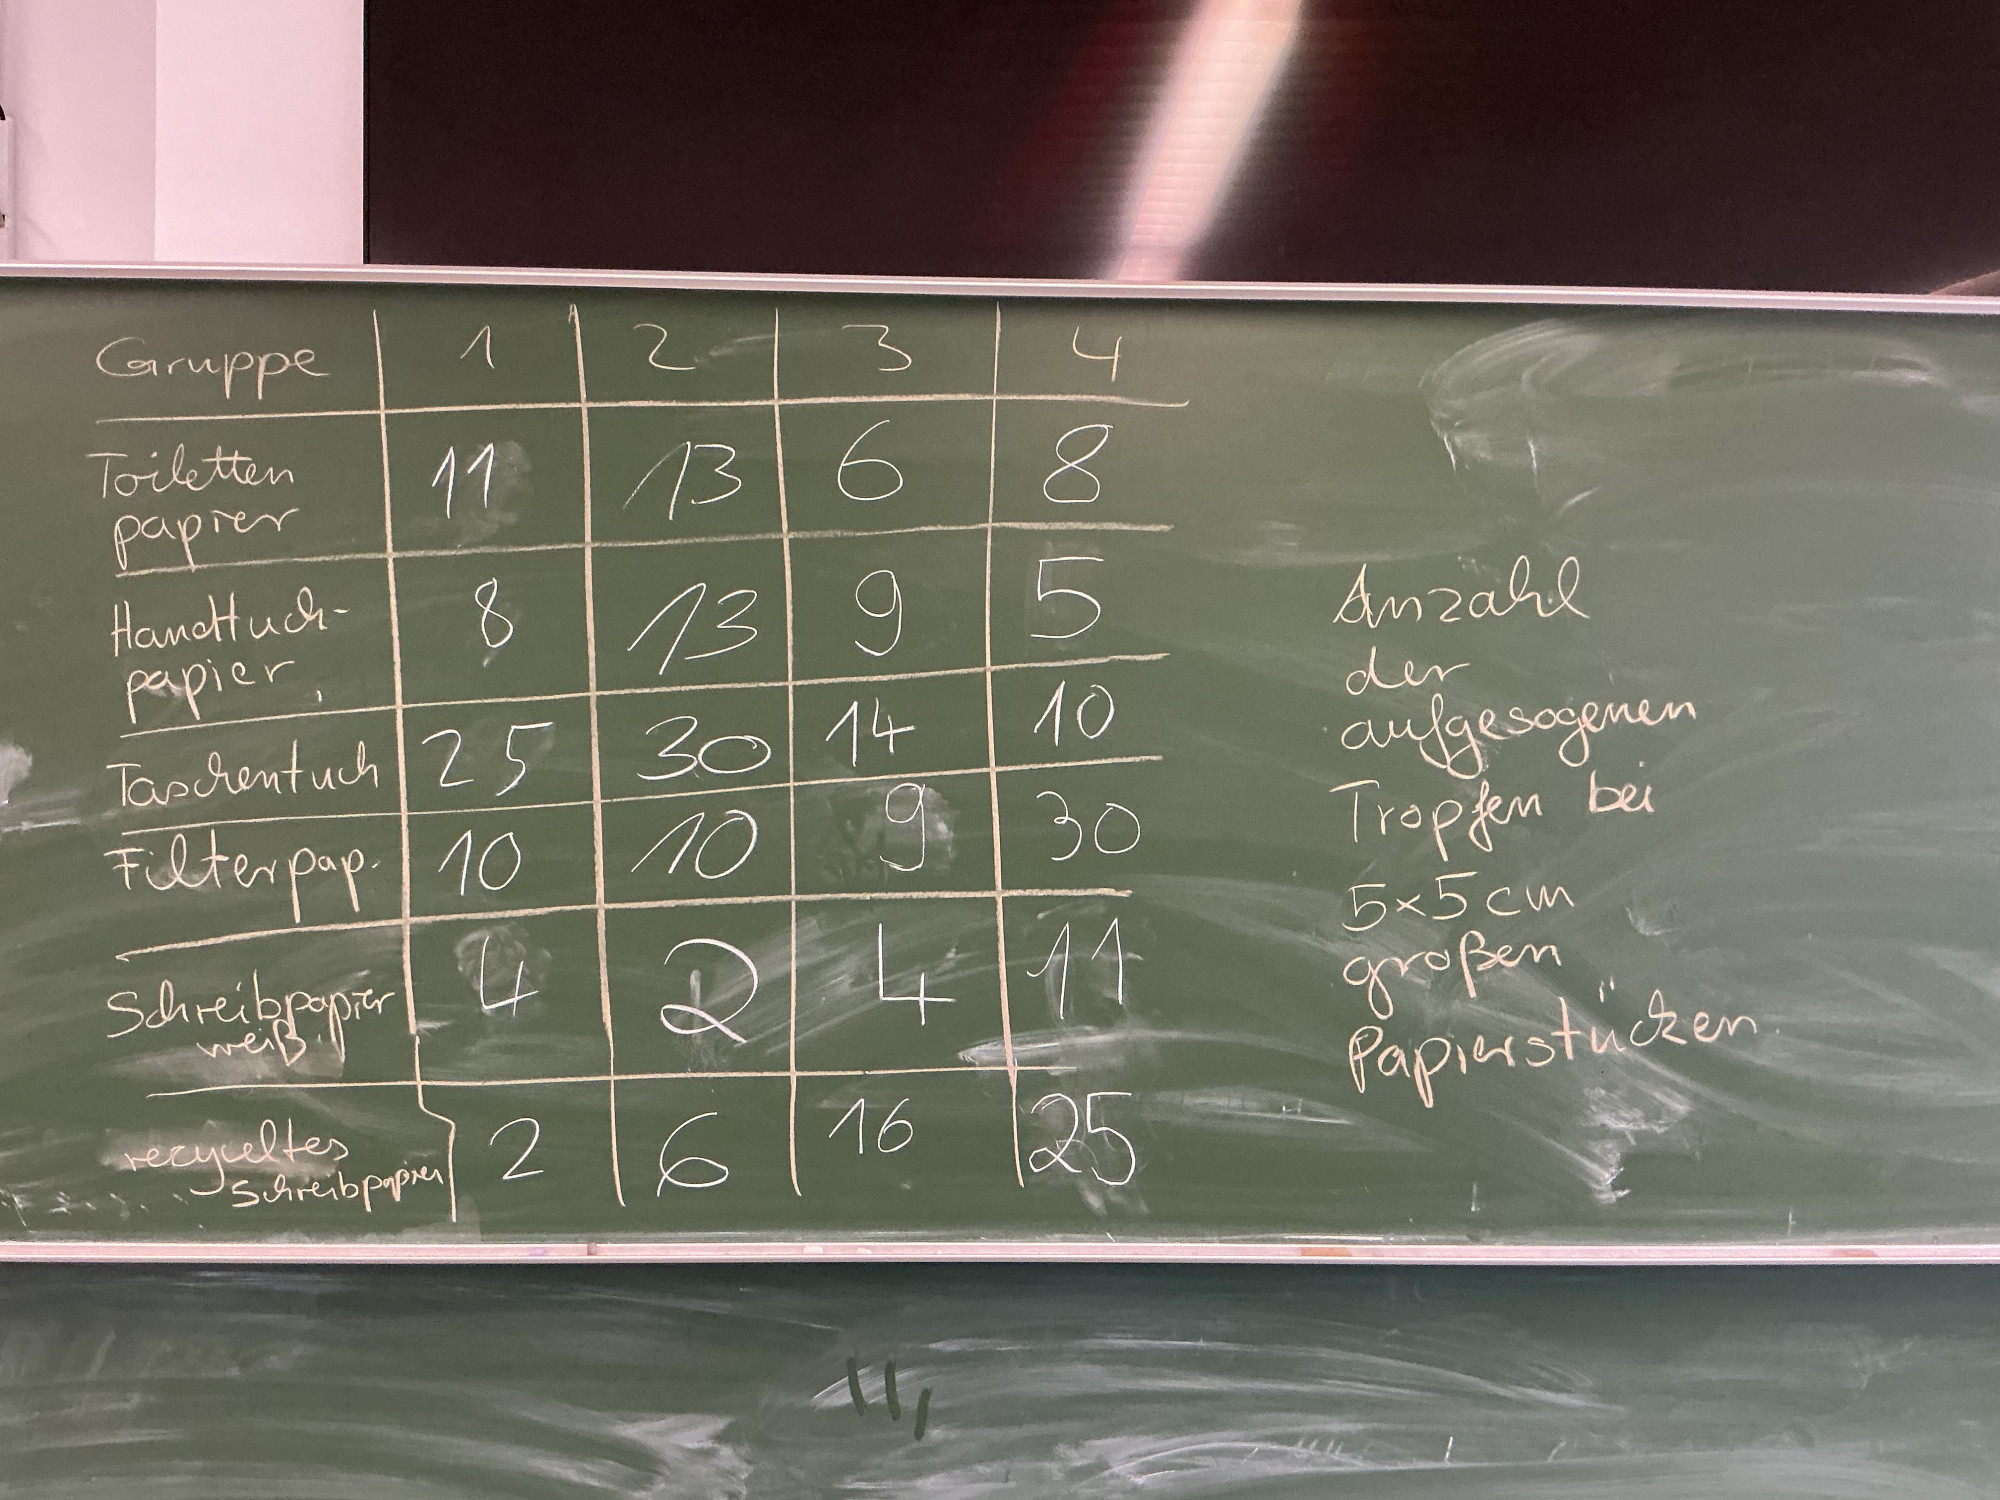 Gruppe 1 2 3 4
Toiletten
papier 11 13 6 8
Handtuch-
papier 8 13 9 5
Taschentuch 25 30 14 10
Filterpap. 10 10 9 30
Schreibpapier
weiß 4 2 4 11
recyceltes
Schreibpapier 2 6 16 25
Anzahl
der
aufgesogenen
Tropfen bei
5×5 cm
großen
Papierstücken